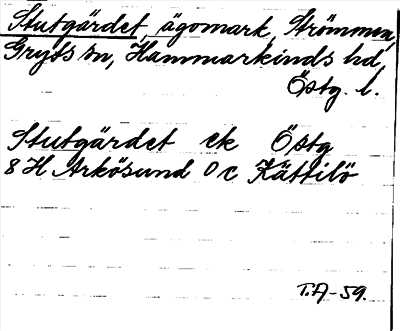 Stutgärdet, ägomark, Strömmen,
Gryts sn, Hammarkinds hd,
Östg. l.
Stutgärdet ek Östg
8 H Arkösund 0 c Kättilö
T.A-59.